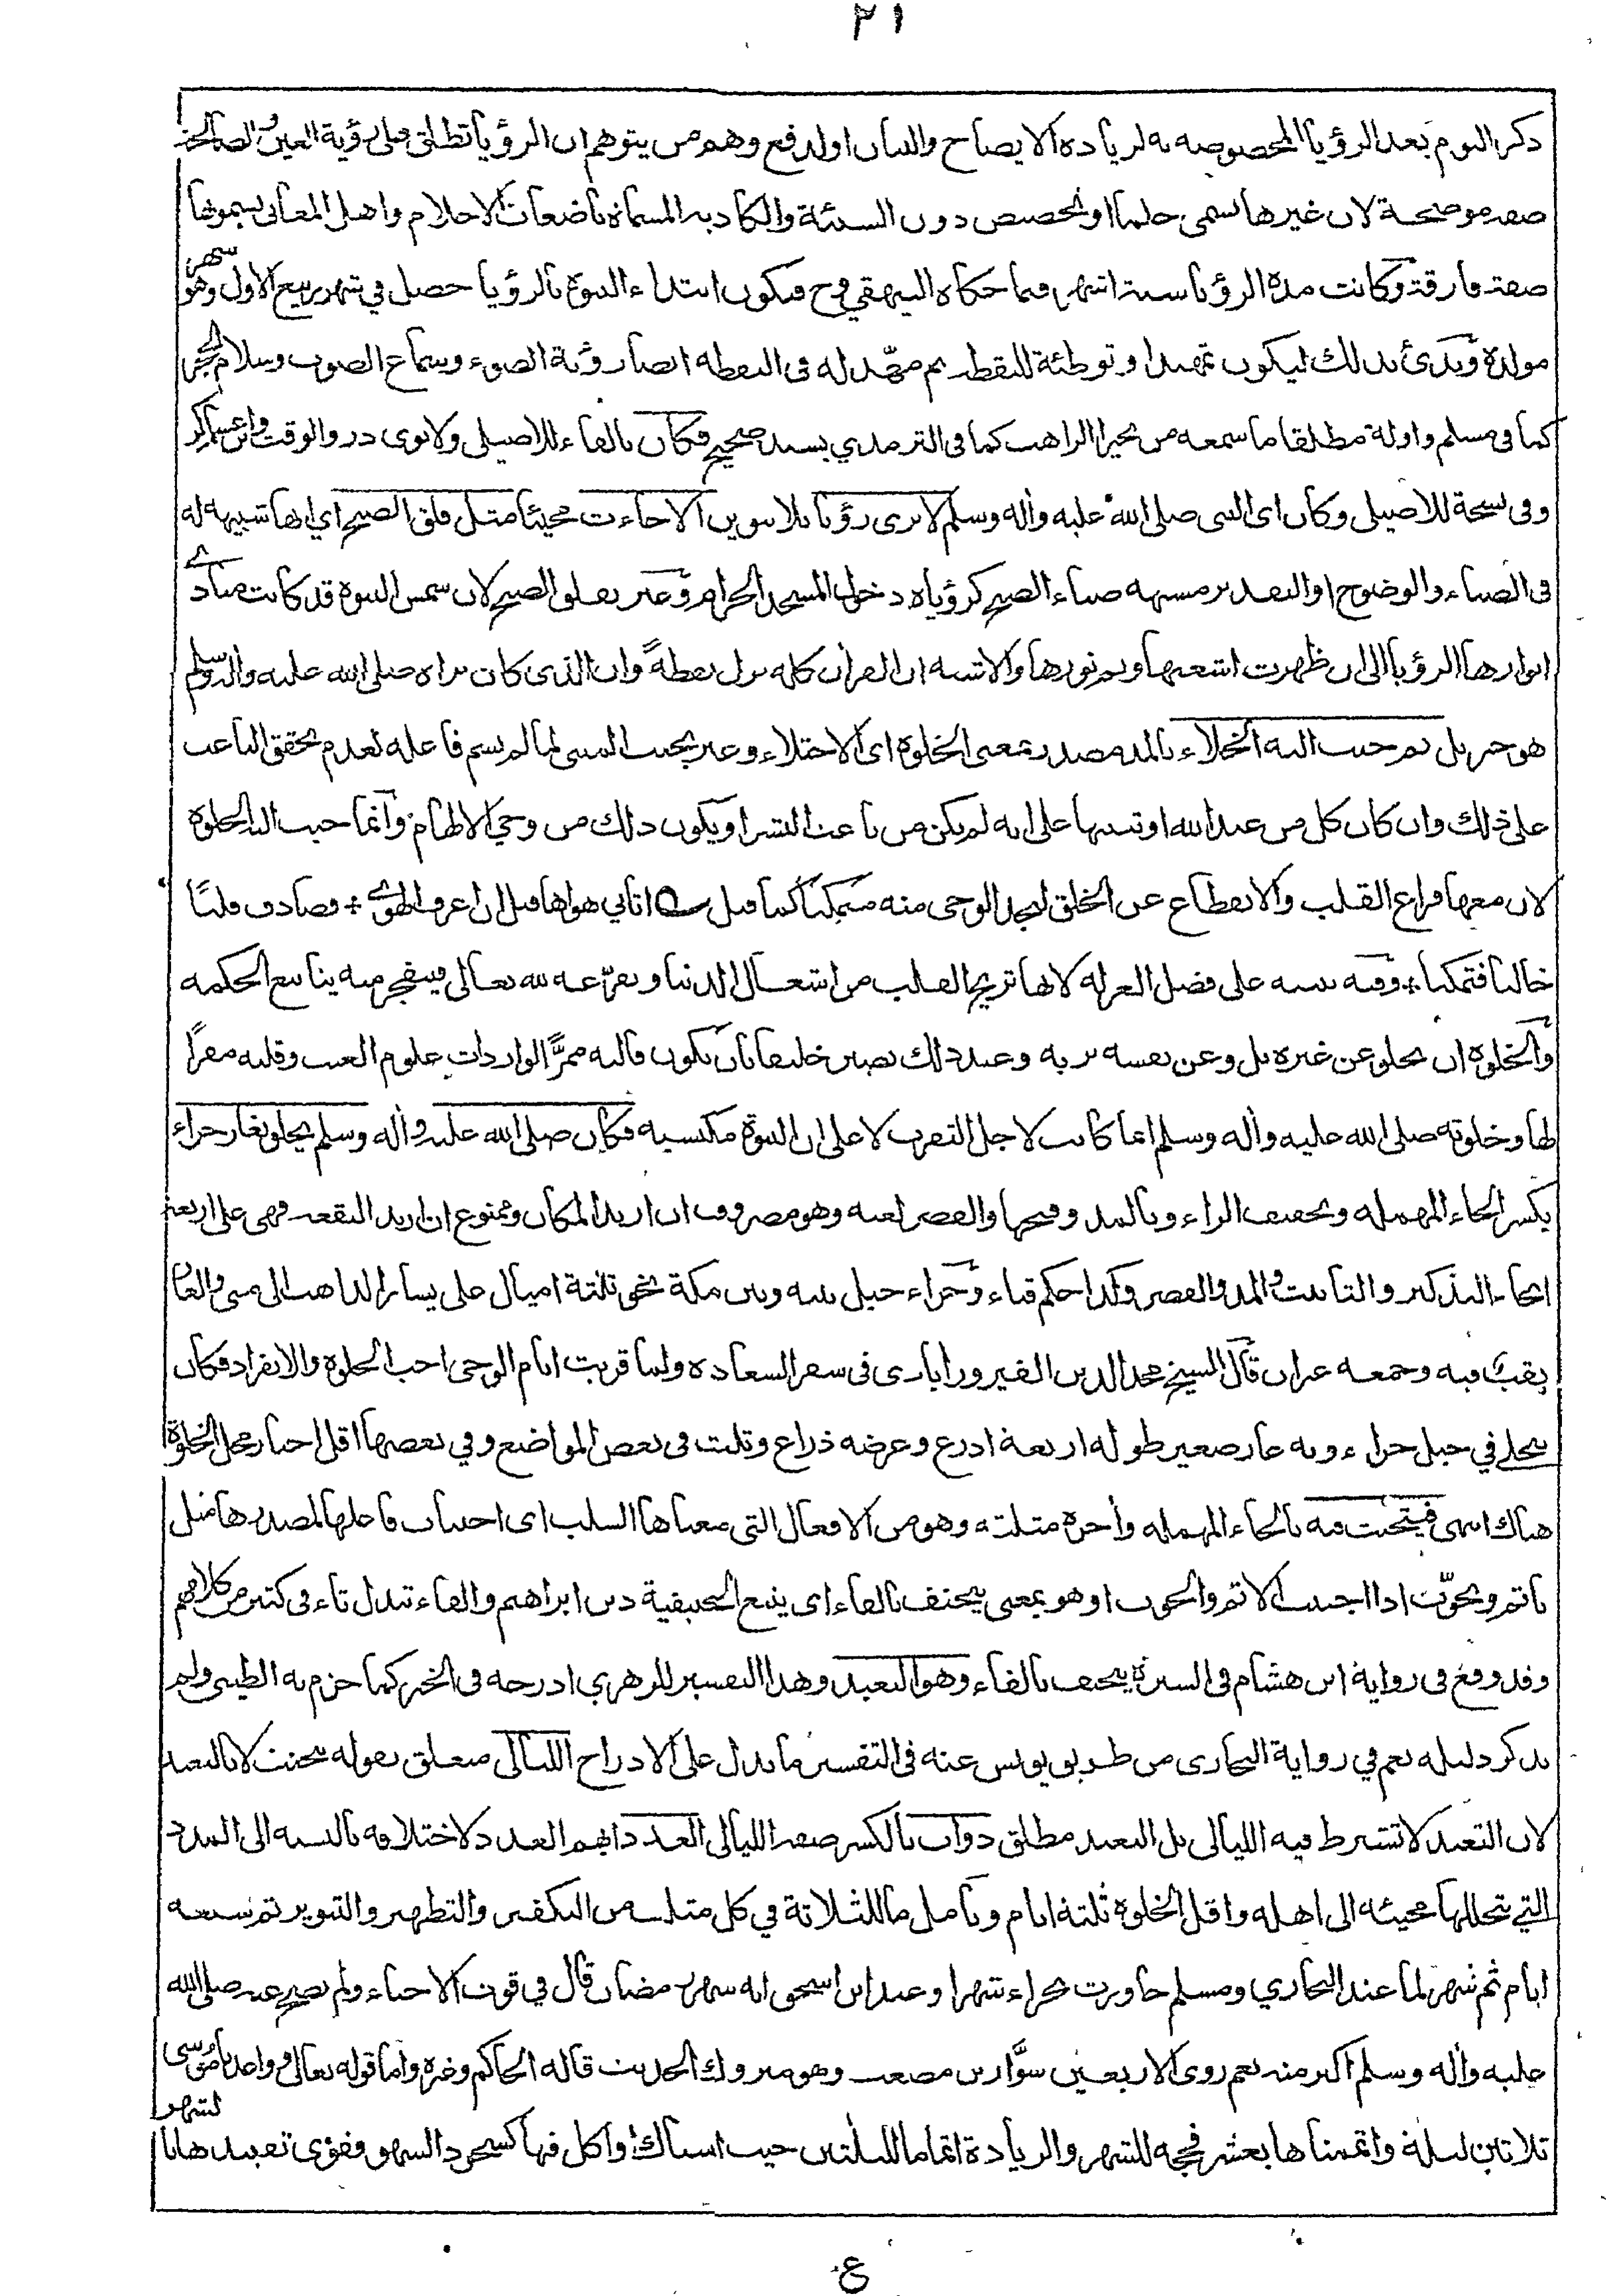 ٢١
ذكر النوم بعد الرؤيا المخصوصة به لزيادة الايضاح والبيان اولدفع وهم من يتوهم ان الرؤيا تطلق على رؤية العين والصالحة
صفة موضحة لان غيرها تسمى حلما او تخصيص دون السيئة والكاذبة المسماة باضغاث الاحلام واهل المعانى يسمونها
صفة فارقة وكانت مدة الرؤيا ستة اشهر فيما حكاه البيهقي وح فيكون ابتداء النبوة بالرؤيا حصل في شهر ربيع الاول وهو شهر
مولده وبدئ بذلك ليكون تمهيدا وتوطئة لليقظة ثم مهّد له فى اليقظة ايضا رؤية الضوء وسماع الصوت وسلام الحجر
كما فى مسلم واوله مطلقا ما سمعه من بحيرا الراهب كما فى الترمذي بسند صحيح فكان بالفاء للاصيلى ولابوى ذر والوقت وابن عساكر
وفى نسخة للاصيلى وكان اى النبى صلى الله عليه وأله وسلم لا يرى رؤيا بلا تنوين الا جاءت مجيئا مثل فلق الصبح اي انها شبيهة له
فى الضياء والوضوح او التقدير مشبهة ضياء الصبح كرؤياه دخول المسجد الحرام وعبر بفلق الصبح لان شمس النبوة قد كانت مبادى
انوارها الرؤيا الى ان ظهرت اشعتها وتم نورها والاشبه ان القرأن كله نزل يقظةً وان الذى كان يراه صلى الله عليه وأله وسلم
هو جبريل ثم حبب اليه الخلاء بالمد مصدر بمعنى الخلوة اى الاختلاء وعبر بحبب المبنى لما لم يسم فاعله لعدم تحقق الباعث
على ذلك وان كان كل من عند الله او تنبيها على انه لم يكن من باعث البشر او يكون ذلك من وحي الالهام وانما حبب اليه الخلوة
لان معها فراغ القلب والانقطاع عن الخلق ليجد الوحى منه متمكنا كما قيل اتاني هواها قبل ان اعرف الهوى ۞ فصادف قلبًا
خاليا فتمكنا ۞ وفيه تنبيه على فضل العزلة لانها تريح القلب من اشتغال الدنيا وتفرّغه لله تعالى فينفجر منه ينابيع الحكمة
والخلوة ان يخلو عن غيره بل وعن نفسه بربه وعند ذلك يصير خليقا بان يكون قالبه ممرًّا لواردات علوم الغيب وقلبه مقرًا
لها وخلوته صلى الله عليه وأله وسلم انما كانت لاجل التقرب لا على ان النبوة مكتسبة فكان صلى الله عليه وأله وسلم يخلو بغار حراء
بكسر الحاء المهملة وتخفيف الراء وبالمد وفتحها والقصر لغيه وهو مصروف ان اريد المكان وممنوع ان اريد البقعة فهى على اربعة
انحاء التذكير والتانيث والمد والقصر وكذا حكم قباء وحراء جبل بينه وبين مكة نحو ثلثة اميال على يسار الذاهب الى منى والغار
نقب فيه وجمعه غيران قال الشيخ مجد الدين الفيروزابادى فى سفر السعادة ولما قربت ايام الوحى احب الخلوة والانفراد فكان
يتخلى في جبل حراء وبه غار صغير طوله اربعة اذرع وعرضه ذراع وثلث فى بعض المواضع وفي بعضها اقل اختار محل الخلوة
هناك انتهى فيتحنث فيه بالحاء المهملة وأخره مثلثه وهو من الافعال التى معناها السلب اى اجتناب فاعلها لمصدرها مثل
تاثم وتحوّب اذا اجتنب الاثم والحوب او هو بمعنى يتحنف بالفاء اى يتبع الحنيفية دين ابراهيم والفاء تبدل ثاء فى كثير من كلامهم
وقد وقع فى رواية ابن هشام فى السيرة يتحنف بالفاء وهو التعبد وهذا التفسير للزهري ادرجه فى الخبر كما جزم به الطيبى ولم
يذكر دليله نعم في رواية البخارى من طريق يونس عنه فى التفسير ما يدل على الادراج الليالى متعلق بقوله يتحنث لا بالتعبد
لان التعبد لا تشترط فيه الليالى بل التعبد مطلق ذوات بالكسر صفة الليالى العدد ابهم العدد لاختلافه بالنسبة الى المدد
التي يتخللها مجيئه الى اهله واقل الخلوة ثلثة ايام وتامل ما للثلاثة في كل مثلث من التكفير والتطهير والتنوير ثم سبعة
ايام ثم شهر لما عند البخاري ومسلم جاورت بحراء شهرا وعند ابن اسحق انه شهر رمضان قال في قوت الاحياء ولم يصح عنه صلى الله
عليه وأله وسلم اكثر منه نعم روى الاربعين سوَّار بن مصعب وهو متروك الحديث قاله الحاكم وغيره واما قوله تعالى وواعدنا موسى
ثلاثين ليلة واتممناها بعشر فحجة للشهر والزيادة اتماما للثلثين حيث استاك او اكل فيها كسجود السهو فقوى تقييدها بالشهر
ع